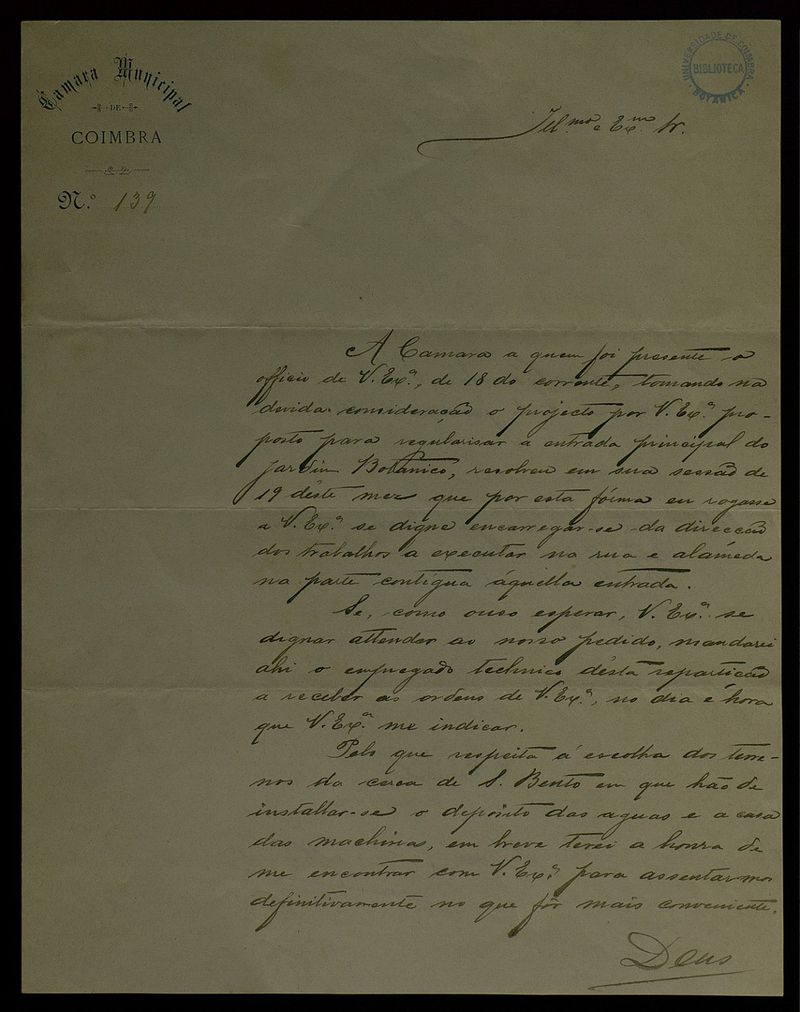 Camara Municipal
DE
COIMBRA
N.º 139
UNIVERSIDADE DE COIMBRA
BIBLIOTECA
BOTANICA
Ill.mo e Ex.mo Sr.
A Camara a quem foi presente o
officio de V. Ex.ª, de 18 do corrente, tomando na
devida consideração o projecto por V. Ex.ª pro-
posto para regularisar a entrada principal do
Jardim Botanico, resolveu em sua sessão de
19 déste mez que por esta fórma eu rogasse
a V. Ex.ª se digne encarregar-se da direcção
dos trabalhos a executar na rua e alaméda
na parte contigua áquella entrada.
Se, como ouso esperar, V. Ex.ª se
dignar attender ao nosso pedido, mandarei
ahi o empregado technico désta repartição
a receber as ordens de V. Ex.ª, no dia e hora
que V. Ex.ª me indicar.
Pelo que respeita á escolha dos terre-
nos da cêrca de S. Bento em que hão de
installar-se o deposito das aguas e a casa
das machinas, em breve terei a honra de
me encontrar com V. Ex.ª para assentarmos
definitivamente no que fôr mais conveniente.
Deus